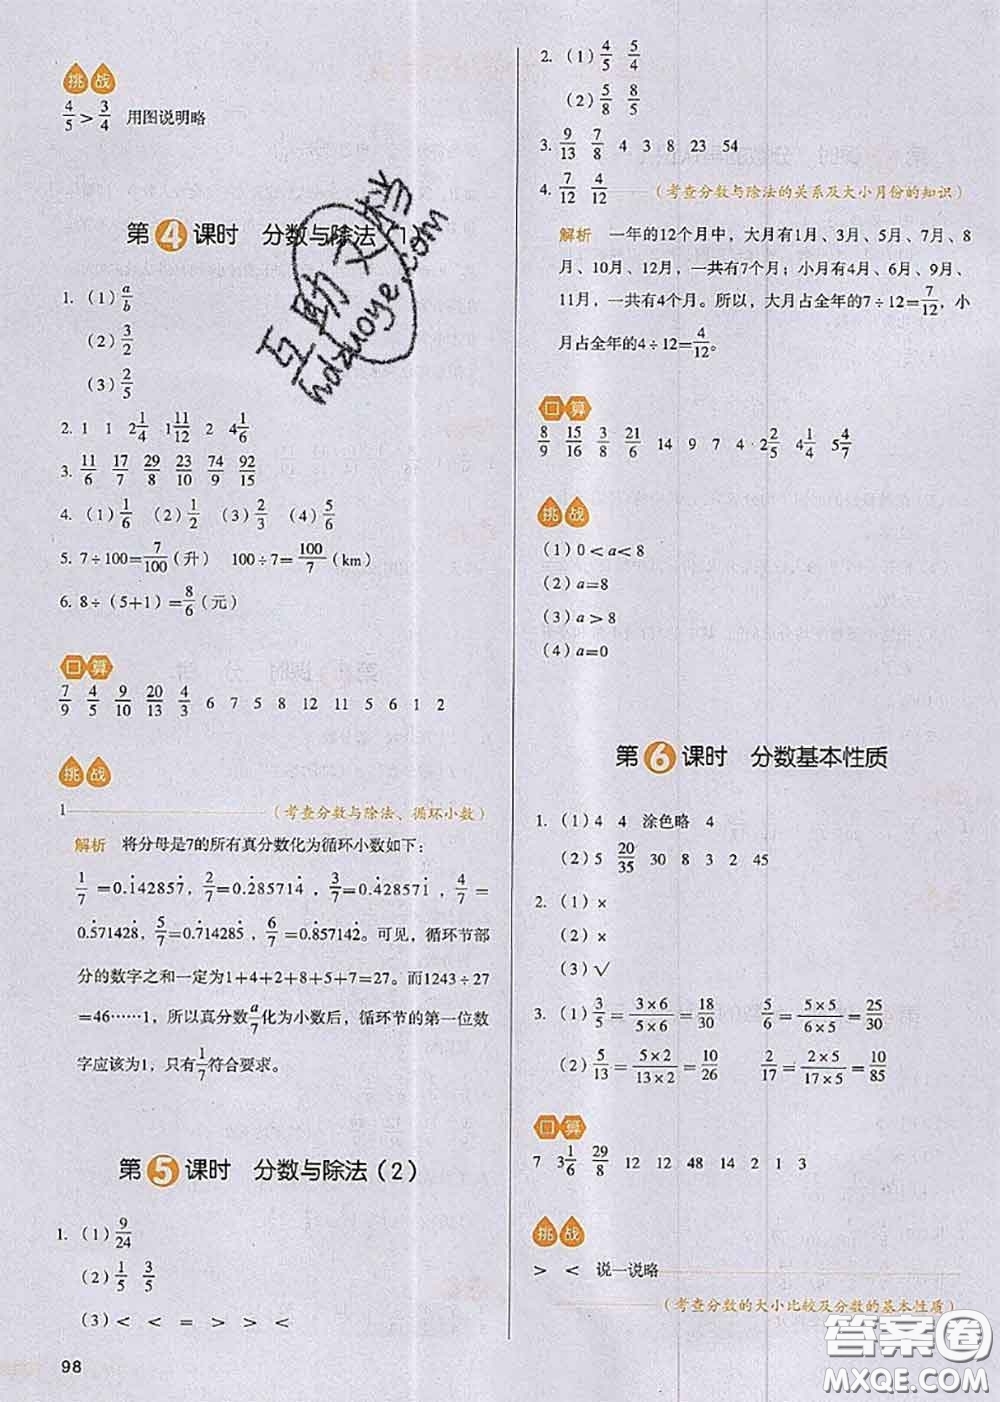 挑战
4/5 > 3/4 用图说明略
第4课时 分数与除法(1)
1. (1) a/b
(2) 3/2
(3) 2/5
2. 1 1 2 1/4 1 11/12 2 4 1/6
3. 11/6 17/7 29/8 23/10 74/9 92/15
4. (1) 1/6 (2) 1/2 (3) 2/3 (4) 5/6
5. 7÷100=7/100(升) 100÷7=100/7(km)
6. 8÷(5+1)=8/6(元)
口算
7/9 4/5 9/10 20/13 4/3 6 7 5 8 12 11 5 6 1 2
挑战
1 (考查分数与除法、循环小数)
解析 将分母是7的所有真分数化为循环小数如下:
1/7=0.1̇42857̇, 2/7=0.2̇85714̇, 3/7=0.4̇28571̇, 4/7=
0.5̇71428̇, 5/7=0.7̇14285̇, 6/7=0.8̇57142̇。可见,循环节部
分的数字之和一定为1+4+2+8+5+7=27。而1243÷27
=46……1,所以真分数a/7化为小数后,循环节的第一位数
字应该为1,只有1/7符合要求。
第5课时 分数与除法(2)
1. (1) 9/24
(2) 1/5 3/5
(3) < < = > > <
98
2. (1) 4/5 5/4
(2) 5/8 8/5
3. 9/13 7/8 4 3 8 23 54
4. 7/12 4/12 (考查分数与除法的关系及大小月份的知识)
解析 一年的12个月中,大月有1月、3月、5月、7月、8
月、10月、12月,一共有7个月;小月有4月、6月、9月、
11月,一共有4个月。所以,大月占全年的7÷12=7/12,小
月占全年的4÷12=4/12。
口算
8/9 15/16 3/8 21/6 14 9 7 4 2 2/5 4 1/4 5 4/7
挑战
(1) 0<a<8
(2) a=8
(3) a>8
(4) a=0
第6课时 分数基本性质
1. (1) 4 4 涂色略 4
(2) 5 20/35 30 8 3 2 45
2. (1) ×
(2) ×
(3) √
3. (1) 3/5=3×6/5×6=18/30 5/6=5×5/6×5=25/30
(2) 5/13=5×2/13×2=10/26 2/17=2×5/17×5=10/85
口算
7 3 1/6 29/8 12 12 48 14 2 1 3
挑战
> < 说一说略
(考查分数的大小比较及分数的基本性质)
互助文档
hdzuoye.com
答案圈
MXQE.COM